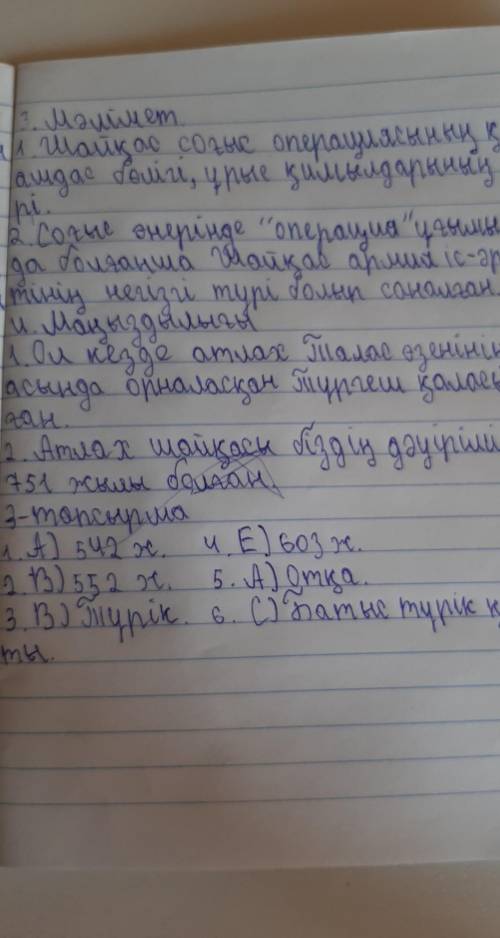 3. Мәлімет
1. Шайқас соғыс операциясының қ
амдас бөлігі, ұрыс қимылдарының
рі.
2. Соғыс өнерінде "операция" ұғымы
да болғанша Шайқас армия іс-әр
тінің негізгі түрі болып саналған.
4. Маңыздылығы
1. Ол кезде атлах Талас өзенінің
асында орналасқан Түргеш қаласы
ған.
2. Атлах шайқасы біздің дәуірімі
751 жылы болған.
3-тапсырма
1. А) 542 ж. 4. Е) 603 ж.
2. В) 552 ж. 5. А) Отқа.
3. В) Түрік. 6. С) Батыс түрік қ
ты.